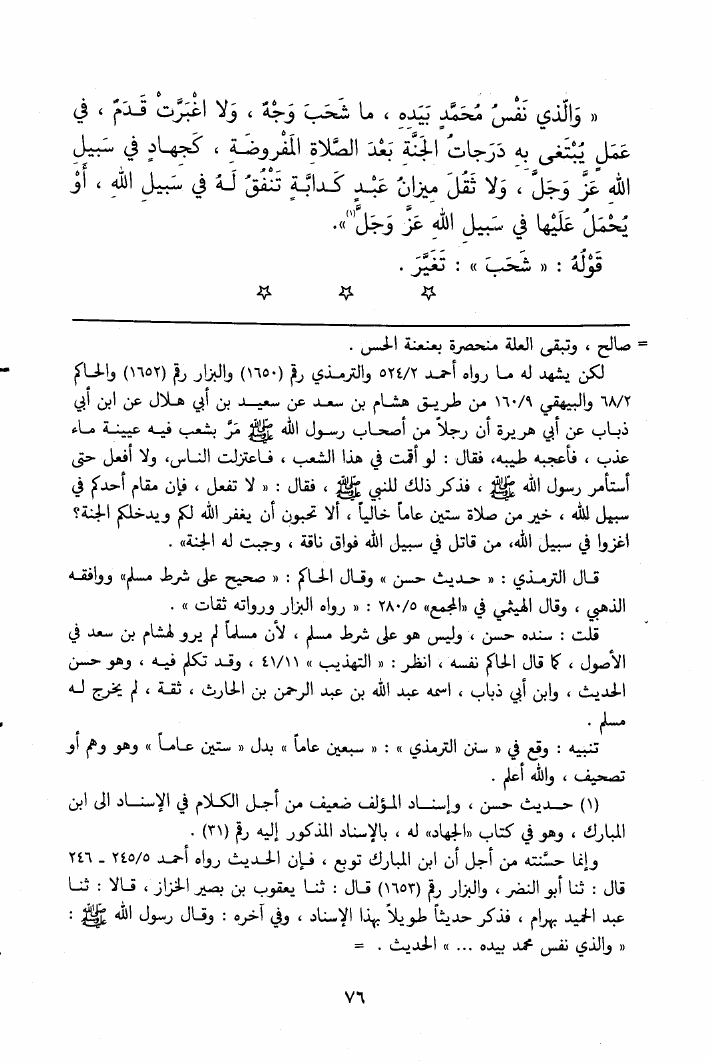 « وَالَّذي نَفْسُ مُحَمَّدٍ بِيَدِهِ ، ما شَحَبَ وَجْهٌ ، وَلا اغْبَرَّتْ قَدَمٌ ، في
عَمَلٍ يُبْتَغى بِهِ دَرَجاتُ الجَنَّةِ بَعْدَ الصَّلاةِ المَفْروضَةِ ، كَجِهادٍ في سَبيلِ
اللهِ عَزَّ وَجَلَّ ، وَلا ثَقُلَ ميزانُ عَبْدٍ كَدابَّةٍ تَنْفُقُ لَهُ في سَبيلِ اللهِ ، أَوْ
يُحْمَلُ عَلَيْها في سَبيلِ اللهِ عَزَّ وَجَلَّ(١)».
قَوْلُهُ : « شَحَبَ » : تَغَيَّرَ .
☆ ☆ ☆
= صالح ، وتبقى العلة منحصرة بعنعنة الحسن .
لكن يشهد له مـا رواه أحمد ٥٢٤/٢ والترمذي رقم (١٦٥٠) والبزار رقم (١٦٥٢) والحاكم
٦٨/٢ والبيهقي ١٦٠/٩ من طريق هشام بن سعد عن سعيد بن أبي هلال عن ابن أبي
ذباب عن أبي هريرة أن رجلاً من أصحاب رسول الله ﷺ مَرَّ بشعب فيه عيينة ماء
عذب ، فأعجبه طيبه، فقال : لو أقمت في هذا الشعب ، فاعتزلت الناس، ولا أفعل حتى
أستأمر رسول الله ﷺ ، فذكر ذلك للنبي ﷺ ، فقال : « لا تفعل ، فإن مقام أحدكم في
سبيل لله ، خير من صلاة ستين عاماً خالياً ، ألا تحبون أن يغفر الله لكم ويدخلكم الجنة؟
اغزوا في سبيل الله، من قاتل في سبيل الله فواق ناقة ، وجبت له الجنة» .
قال الترمذي : « حديث حسن » وقال الحاكم : « صحيح على شرط مسلم» ووافقه
الذهبي ، وقال الهيثمي في «المجمع» ٢٨٠/٥ : « رواه البزار ورواته ثقات » .
قلت : سنده حسن ، وليس هو على شرط مسلم ، لأن مسلماً لم يرو لهشام بن سعد في
الأصول ، كما قال الحاكم نفسه ، انظر : « التهذيب » ٤١/١١ ، وقد تكلم فيه ، وهو حسن
الحديث ، وابن أبي ذباب ، اسمه عبد الله بن عبد الرحمن بن الحارث ، ثقة ، لم يخرج له
مسلم .
تنبيه : وقع في « سنن الترمذي » : « سبعين عاماً » بدل « ستين عاماً » وهو وهم أو
تصحيف ، والله أعلم .
(١) حديث حسن ، وإسناد المؤلف ضعيف من أجل الكلام في الإسناد الى ابن
المبارك ، وهو في كتاب «الجهاد» له ، بالإسناد المذكور إليه رقم (٣١) .
وإنما حسَّنته من أجل أن ابن المبارك توبع ، فإن الحديث رواه أحمد ٢٤٥/٥ ـ ٢٤٦
قال : ثنا أبو النضر ، والبزار رقم (١٦٥٣) قال : ثنا يعقوب بن بصير الخزاز ، قالا : ثنا
عبد الحميد بهرام ، فذكر حديثاً طويلاً بهذا الإسناد ، وفي آخره : وقال رسول الله ﷺ :
« والذي نفس محمد بيده ... » الحديث . =
٧٦